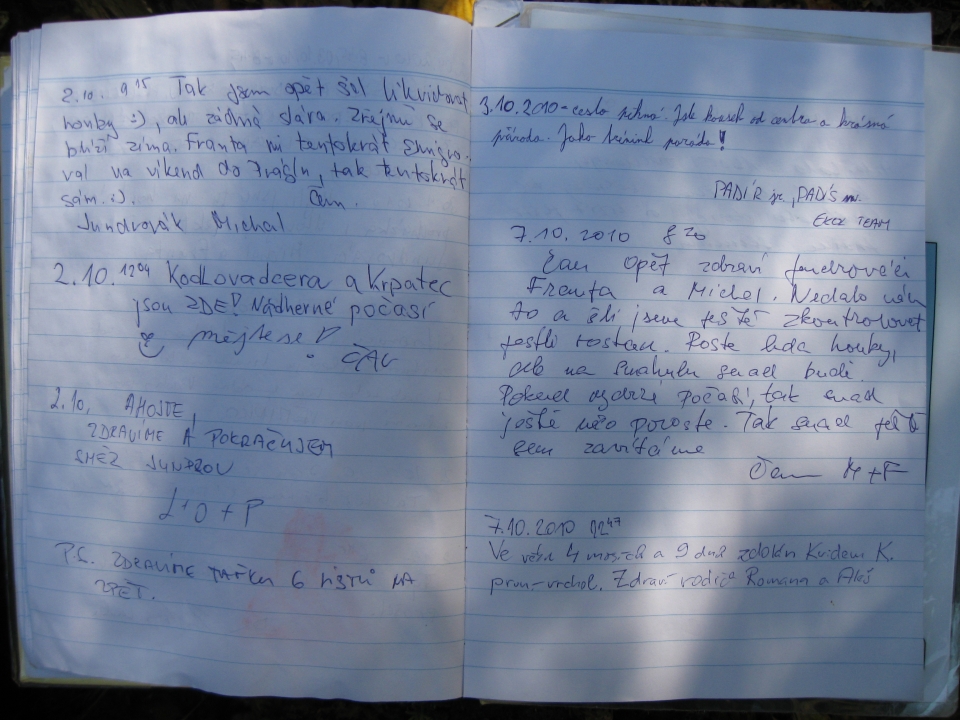 2.10. 9 15 Tak jsem opět šel likvidovat
houby :), ale žádná sláva. Zřejmě se
blíží zima. Franta mi tentokrát
val na víkend do tak tentokrát
sám :). Čau.
Jundrovák Michal
2.10. 1204 Kodlovadcera a Krpatec
jsou ZDE! Nádherné počasí
mějte se!
ČAU
2.10. AHOJTE,
ZDRAVÍME A POKRAČUJEM
SMĚR JUNDROV
L+O+P
P.S. ZDRAVÍME 6 NA
ZPĚT.
3.10.2010 - cesta pěkná. Jak kousek od centra a krásná
příroda. Jako trénink paráda!
PADÍR jr.,
TEAM
7.10.2010 8 20
Čau opět zdraví jundrováci
Franta a Michal. Nedalo nám
to a šli jsme ještě zkontrolovat
jestli rostou. Roste bída houby,
ale na smaženku snad budi.
Pokud vydrží počasí, tak snad
ještě něco poroste. Tak snad ještě
sem zavítáme
Čau M+F
7.10.2010 1247
Ve věku 4 měsíců a 9 dnů zdolán Kvidem K.
první vrchol. Zdraví rodiče Romana a Aleš